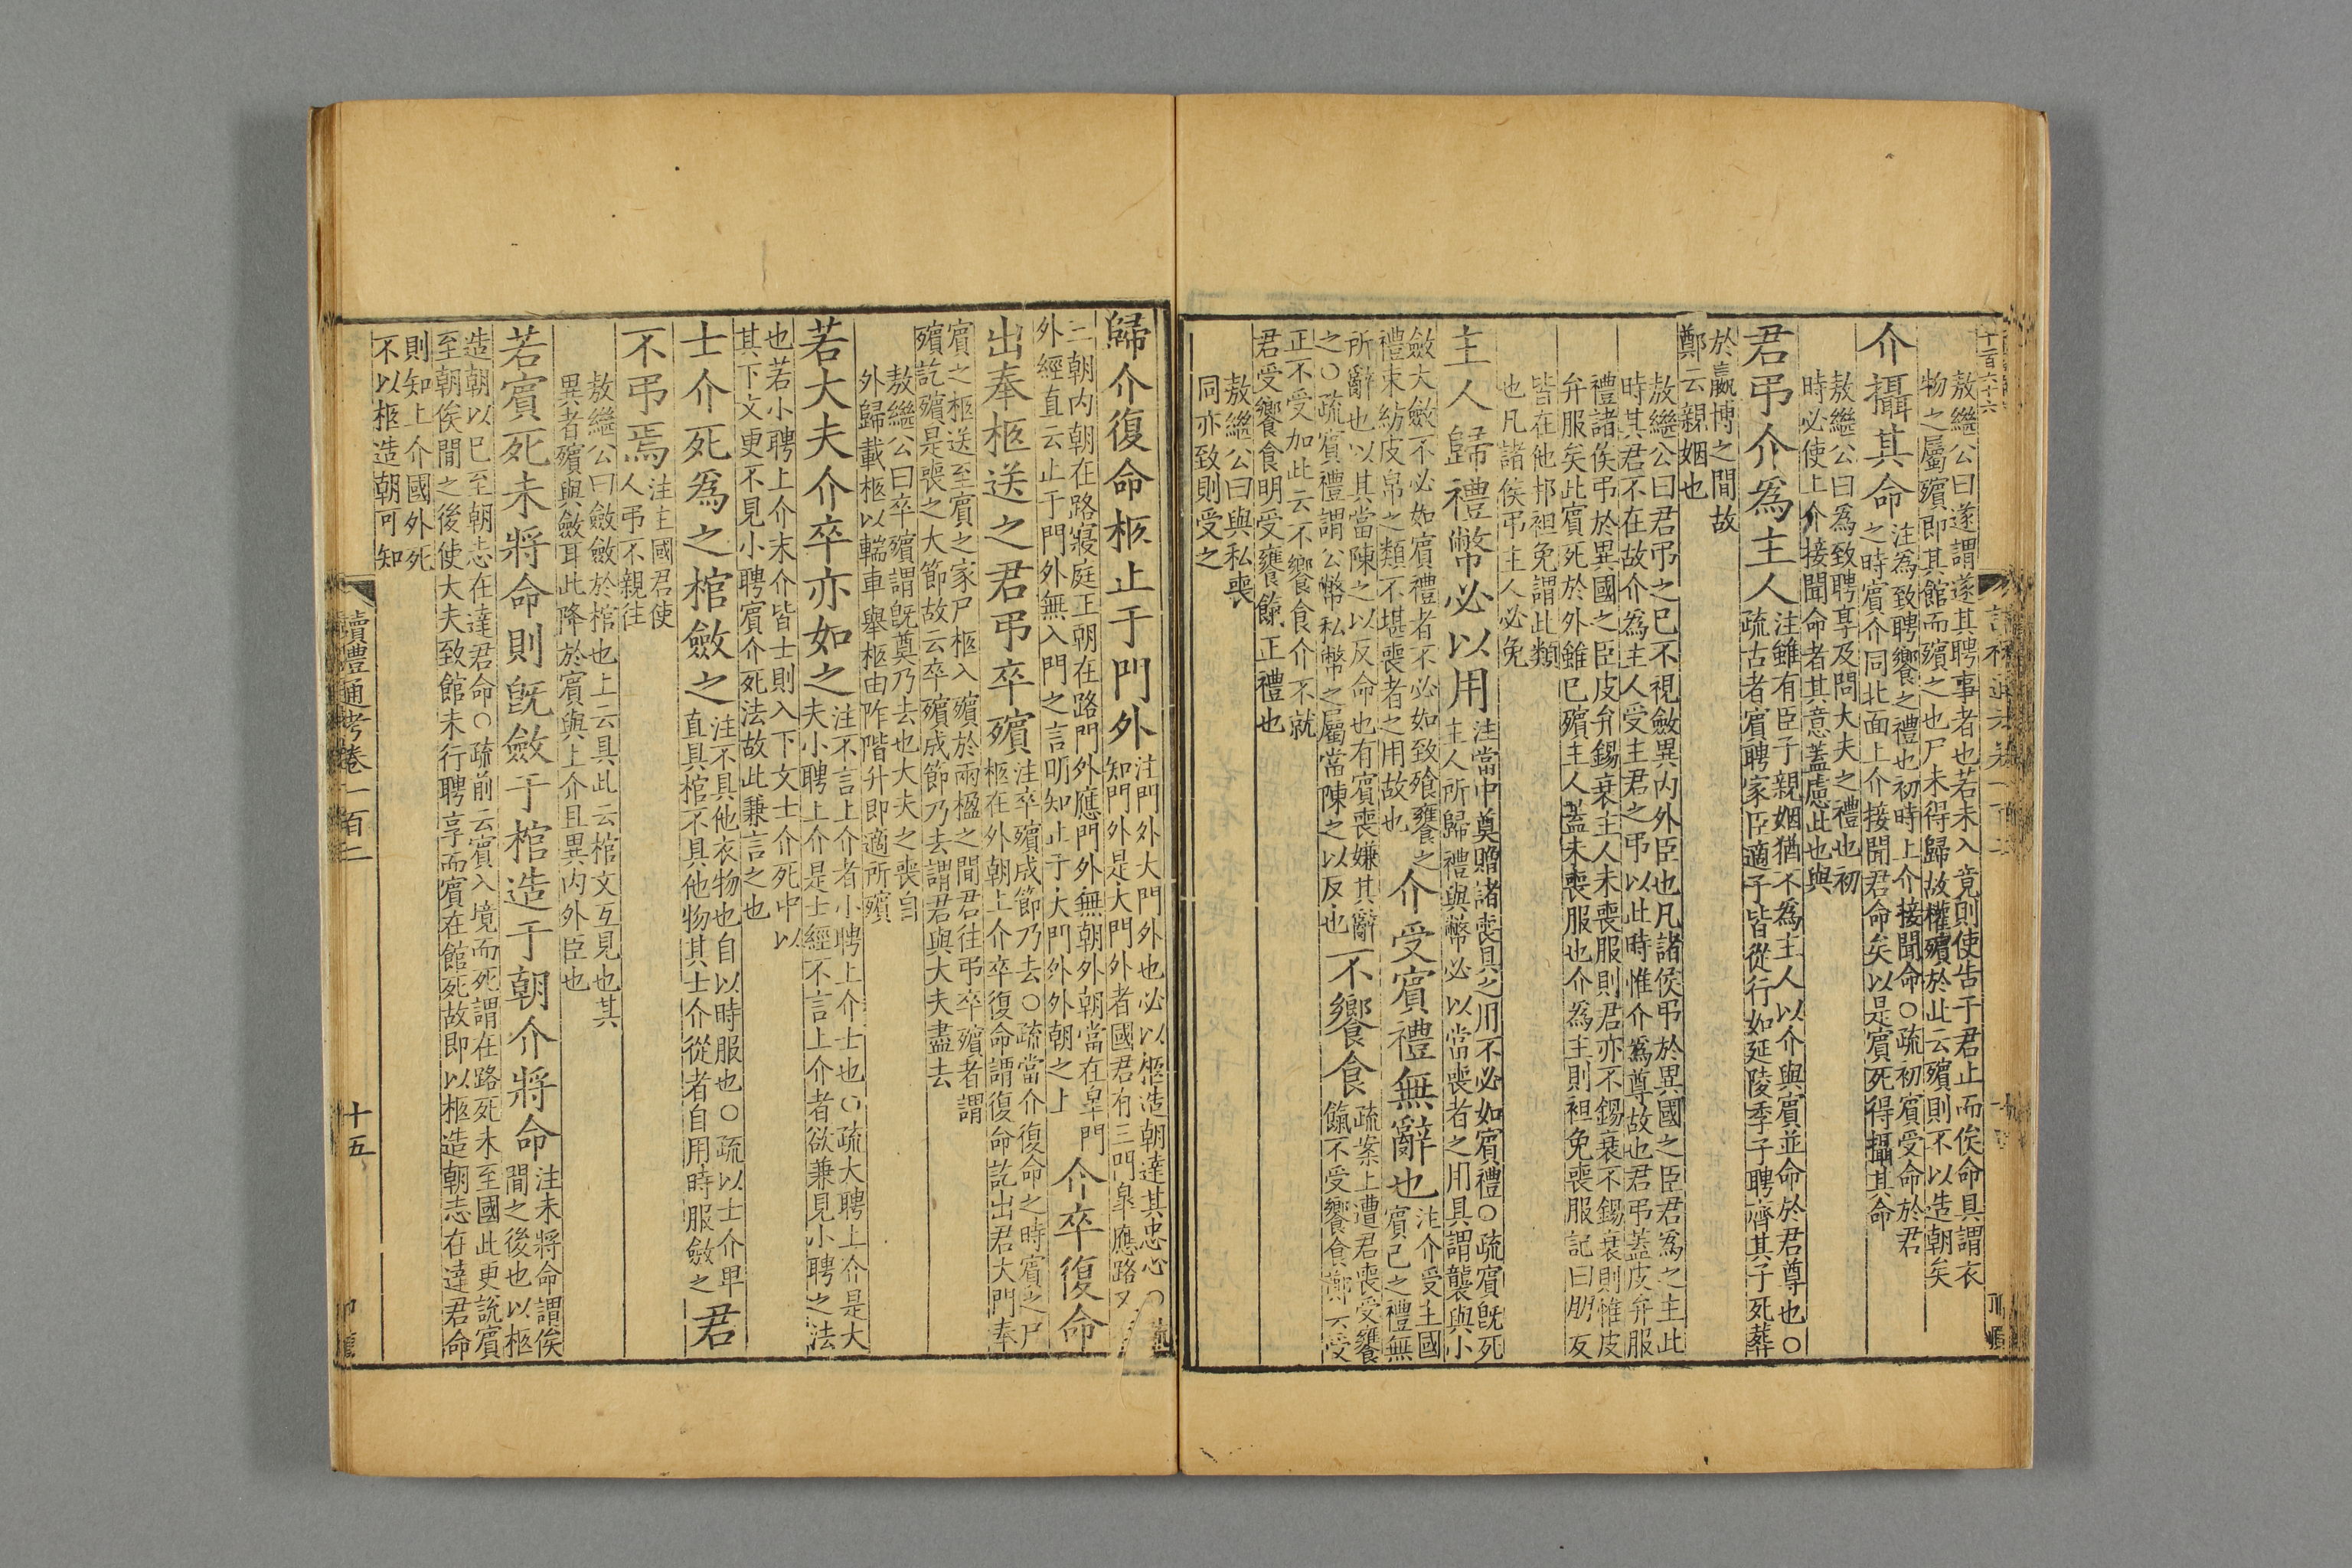 敖繼公曰遂謂遂其聘事者也若未入竟則使告于君止而俟命具謂衣
物之屬殯即其館而殯之也尸未得歸故權殯於此云殯則不以造朝矣
介攝其命
注為致聘饗之禮也初時上介接聞命○疏初賓受命於君
之時賓介同北面上介接聞君命矣以是賓死得攝其命
敖繼公曰為致聘享及問大夫之禮也初
時必使上介接聞命者其意蓋慮此也與
君弔介為主人
注雖有臣子親姻猶不為主人以介與賓並命於君尊也○
疏古者賓聘家臣適子皆從行如延陵季子聘齊其子死葬
於嬴博之間故
鄭云親姻也
敖繼公曰君弔之已不視斂異內外臣也凡諸侯弔於異國之臣君為之主此
時其君不在故介為主人受主君之弔以此時惟介為尊故也君弔蓋皮弁服
禮諸侯弔於異國之臣皮弁錫衰主人未喪服則君亦不錫衰不錫衰則惟皮
弁服矣此賓死於外雖已殯主人蓋未喪服也介為主則袒免喪服記曰朋友
皆在他邦袒免謂此類
也凡諸侯弔主人必免
主人歸禮幣必以用
注當中奠贈諸喪具之用不必如賓禮○疏賓既死
主人所歸禮與幣必以當喪者之用具謂襲與小
斂大斂不必如賓禮者不必如致飱饔餼之
禮束紡皮帛之類不堪喪者之用故也
介受賓禮無辭也
注介受主國
賓己之禮無
所辭也以其當陳之以反命也有賓喪嫌其辭
之○疏賓禮謂公幣私幣之屬當陳之以反也
不饗食
疏案上遭君喪受饔
餼不受饗食鄭云受
正不受加此云不饗食介不就
君受饗食明受饔餼正禮也
敖繼公曰與私喪
同亦致則受之
歸介復命柩止于門外
注門外大門外也必以柩造朝達其忠心○疏
知門外是大門外者國君有三門皋應路又
三朝內朝在路寢庭正朝在路門外應門外無朝外朝當在皋門
外經直云止于門外無入門之言明知止于大門外外朝之上
介卒復命
出奉柩送之君弔卒殯
注卒殯成節乃去○疏當介復命之時賓之尸
柩在外朝上介卒復命謂復命訖出君大門奉
賓之柩送至賓之家尸柩入殯於兩楹之間君往弔卒殯者謂
殯訖殯是喪之大節故云卒殯成節乃去謂君與大夫盡去
敖繼公曰卒殯謂既奠乃去也大夫之喪自
外歸載柩以輲車舉柩由阼階升即適所殯
若大夫介卒亦如之
注不言上介者小聘上介士也○疏大聘上介是大
夫小聘上介是士經不言上介者欲兼見小聘之法
也若小聘上介末介皆士則入下文士介死中以
其下文更不見小聘賓介死法故此兼言之也
士介死為之棺斂之
注不具他衣物也自以時服也○疏以士介卑
直具棺不具他物其士介從者自用時服斂之
君
不弔焉
注主國君使
人弔不親往
敖繼公曰斂斂於棺也上云具此云棺文互見也其
異者殯與斂耳此降於賓與上介且異內外臣也
若賓死未將命則既斂于棺造于朝介將命
注未將命謂俟
間之後也以柩
造朝以已至朝志在達君命○疏前云賓入境而死謂在路死未至國此更說賓
至朝俟間之後使大夫致館未行聘享而賓在館死故即以柩造朝志在達君命
則知上介國外死
不以柩造朝可知
讀禮通考卷一百二
十五